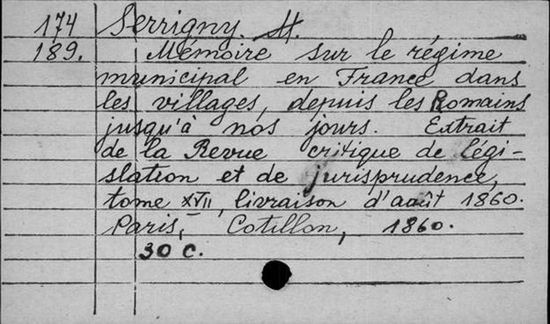 174 Serrigny. M.
189. Mémoire sur le régime
municipal en France dans
les villages, depuis les Romains
jusqu'à nos jours. Extrait
de la Revue critique de légi-
slation et de jurisprudence,
tome XVII, livraison d'août 1860.
Paris, Cotillon, 1860.
30 C.